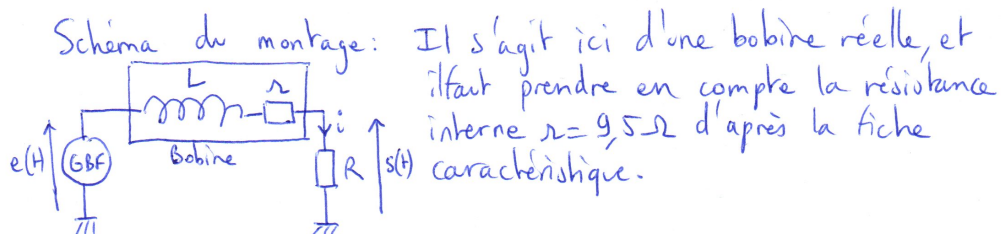 Schéma du montage: Il s'agit ici d'une bobine réelle, et
il faut prendre en compte la résistance
interne r = 9,5 Ω d'après la fiche
caractéristique.
L
r
i
Bobine
e(t)
GBF
R
s(t)